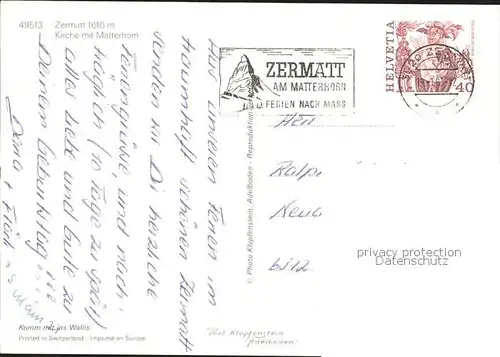 49513
Zermatt 1616 m
Kirche mit Matterhorn
ZERMATT
AM MATTERHORN
FERIEN NACH MASS
HELVETIA
40
Aus unseren Ferien im
traumhaft schönen Zermatt
senden wir Dir herzliche
Feriengrüsse, und nach-
träglich (10 Tage zu spät)
alles Liebe und Gute zu
Deinem Geburtstag
Herr
Ralph
privacy protection
Datenschutz
© Photo Klopfenstein, Adelboden - Reproduktion
Komm mit ins Wallis
Printed in Switzerland - Imprimé en Suisse
Photo Klopfenstein
Adelboden